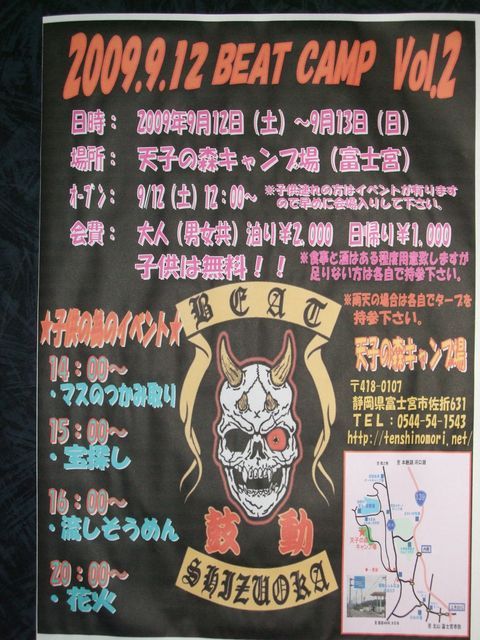 2009.9.12 BEAT CAMP Vol,2
日時： 2009年9月12日（土）～9月13日（日）
場所： 天子の森キャンプ場（富士宮）
ｵｰﾌﾟﾝ： 9/12（土）12：00～ ※子供連れの方はイベントが有ります
ので早めに会場入りして下さい。
会費： 大人（男女共）泊り￥2,000 日帰り￥1,000
子供は無料！！ ※食事と酒はある程度用意致しますが
足りない方は各自で持参下さい。
※雨天の場合は各自でタープを
持参下さい。
★子供の為のイベント★
14：00～
・マスのつかみ取り
15：00～
・宝探し
16：00～
・流しそうめん
20：00～
・花火
BEAT
鼓動
SHIZUOKA
天子の森キャンプ場
〒418-0107
静岡県富士宮市佐折631
TEL：0544-54-1543
http://tenshinomori.net/
天子の森
キャンプ場